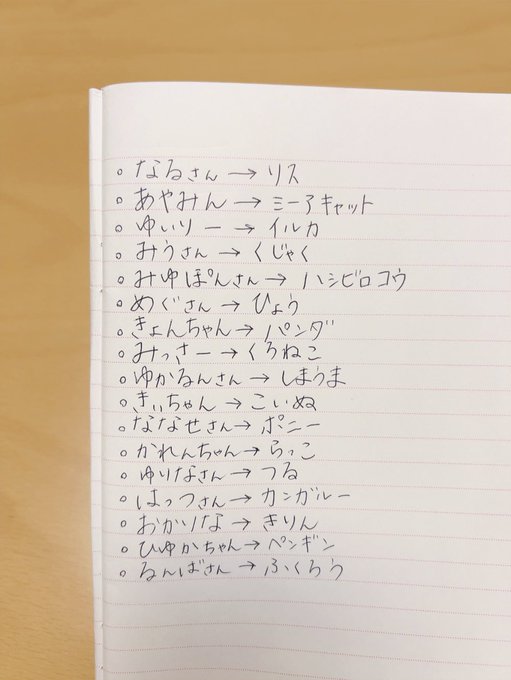 ○ なるさん → リス
○ あやみん → ミーアキャット
○ ゆいりー → イルカ
○ みうさん → くじゃく
○ みゆぽんさん → ハシビロコウ
○ めぐさん → ひょう
○ きょんちゃん → パンダ
○ みっさー → くろねこ
○ ゆかるんさん → しまうま
○ きぃちゃん → こいぬ
○ ななせさん → ポニー
○ かれんちゃん → らっこ
○ ゆりなさん → つる
○ はっつさん → カンガルー
○ おかりな → きりん
○ ひゆかちゃん → ペンギン
○ るんばさん → ふくろう